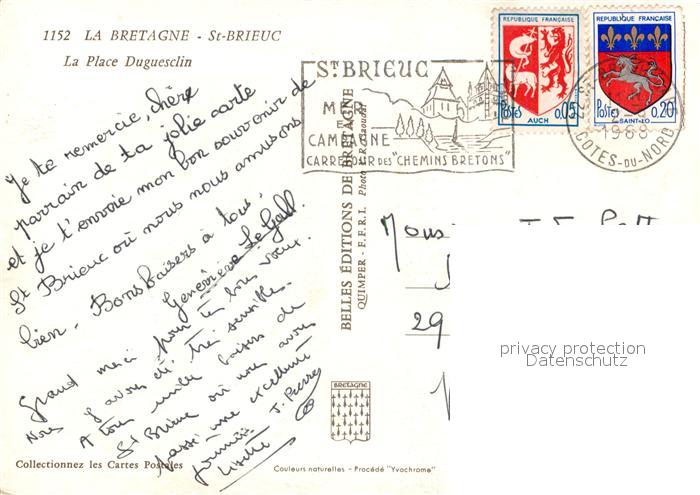 1152 LA BRETAGNE - St-BRIEUC
La Place Duguesclin
Je te remercie, chère
parrain de ta jolie carte
et je t'envoie mon bon souvenir de
St Brieuc où nous nous amusons
bien. Bons baisers à tous.
Geneviève Le Gall
Grand merci pour tes bons vœux.
Nous y avons été très sensible.
A tous mille baisers de
St Brieuc où nous avons
passé une excellente
journée. J. Pierre
Collectionnez les Cartes Postales
BELLES ÉDITIONS DE BRETAGNE
QUIMPER - F.F.R.I. Photo
BRETAGNE
Couleurs naturelles - Procédé "Yvochrome"
ST BRIEUC
MER
CAMPAGNE
CARREFOUR DES "CHEMINS BRETONS"
REPUBLIQUE FRANÇAISE
POSTES 0,05
AUCH
REPUBLIQUE FRANÇAISE
POSTES 0,20
SAINT-LO
1968
COTES-DU-NORD
29
privacy protection
Datenschutz